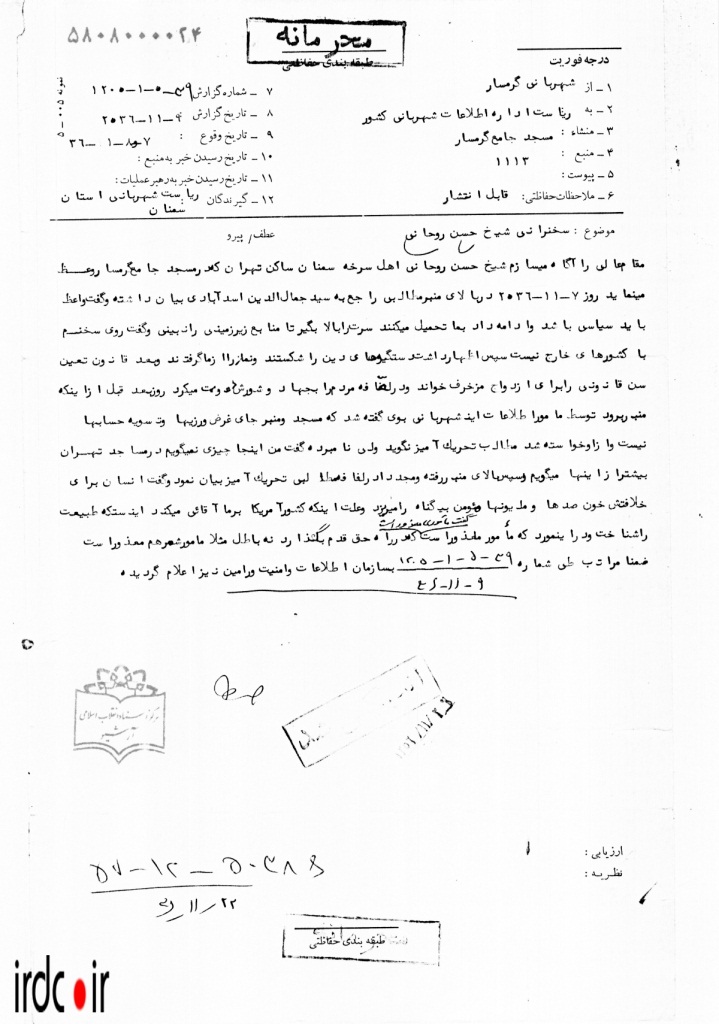 ۵۸۰۸۰۰۰۰۲۴
محرمانه
طبقه بندی حفاظتی
درجه فوریت
۱ـ از شهربانی گرمسار
۲ـ به ریاست اداره اطلاعات شهربانی کشور
۳ـ منشاء: مسجد جامع گرمسار
۴ـ منبع : ۱۱۱۳
۵ـ پیوست:
۶ـ ملاحظات حفاظتی: قابل انتشار
نمونه ۰۰۵ – ۵
۷ ـ شماره گزارش ۳۹–۵–۱–۱۲۰۵
۸ ـ تاریخ گزارش ۹–۱۱–۲۵۳۶
۹ ـ تاریخ وقوع :
۱۰ ـ تاریخ رسیدن خبر به منبع :
۱۱ ـ تاریخ رسیدن خبر به رهبر عملیات:
۱۲ ـ گیرندگان ریاست شهربانی استان سمنان
موضوع : سخنرانی شیخ حسن روحانی
عطف/ پیرو
مقام عالی را آگاه میسازم شیخ حسن روحانی اهل سرخه سمنان ساکن تهران که در مسجد جامع گرمسار وعظ
مینماید روز ۷–۱۱–۲۵۳۶ در بالای منبر مطالبی راجع به سید جمال الدین اسدآبادی بیان داشته و گفت واعظ
باید سیاسی باشد و ادامه داد بما تحمیل میکنند سرت را بالا بگیر تا منابع زیرزمینی را نبینی و گفت روی سخنم
با کشورهای خارج نیست سپس اظهار داشت سنگرهای دین را شکستند و نماز را از ما گرفتند و بعد قانون تعیین
سن قانونی را برای ازدواج مزخرف خواند و در لفافه مردم را بجهاد و شورش دعوت میکرد روز بعد قبل از اینکه
منبر برود توسط مامور اطلاعات این شهربانی بوی گفته شد که مسجد و منبر جای غرض ورزیها و تسویه حسابها
نیست و از او خواسته شد مطالب تحریک آمیز نگوید ولی نامبرده گفت من اینجا چیزی نمیگویم در مساجد تهران
بیشتر از اینها میگویم و سپس بالای منبر رفته و مجدداً در لفافه مطالبی تحریک آمیز بیان نمود و گفت انسان برای
خلافتش خون صدها و ملیونها مؤمن بیگناه را میریزد و علت اینکه کشور آمریکا بر ما آقائی میکند اینستکه طبیعت
را شناخت و در
که مأمور معذور است که در راه حق قدم بگذارد نه باطل مثلا مامور شمر هم معذور است
ضمنا مراتب طی شماره ۳۹–۵–۱–۱۲۰۵ بسازمان اطلاعات و امنیت ورامین نیز اعلام گردیده
۹–۱۱–۳۶
مرکز اسناد انقلاب اسلامی
آرشیو
ارزیابی :
نظریه :
طبقه بندی حفاظتی
irdc.ir